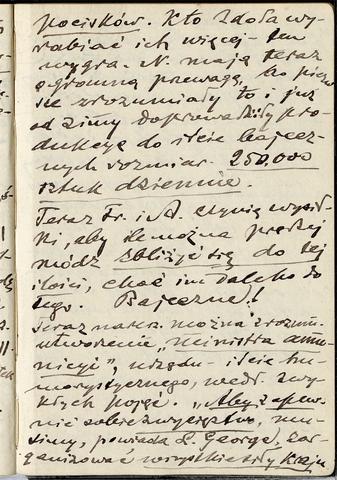 pocisków. Kto zdoła wy-
rabiać ich więcej - ten
wygra. N. mają teraz
ogromną przewagę, bo pierw
sze zrozumiały to i już
od zimy doprowadziły pro-
dukcję do iście bajecz-
nych rozmiar. 250.000
sztuk dziennie.
Teraz Fr. i A. czynią wysił-
ki, aby ile można prędzej
módz zbliżyć się do tej
ilości, choć im daleko do
tego. Bajeczne!
Teraz można zrozum.
utworzenie "ministra amu-
nicyi", urzędu - iście hu-
morystycznego, wedł. zwy-
kłych pojęć. "Aby zapew-
nić sobie zwycięstwo, mu-
simy, powiada L. George, zor-
ganizować wszystkie siły kraju